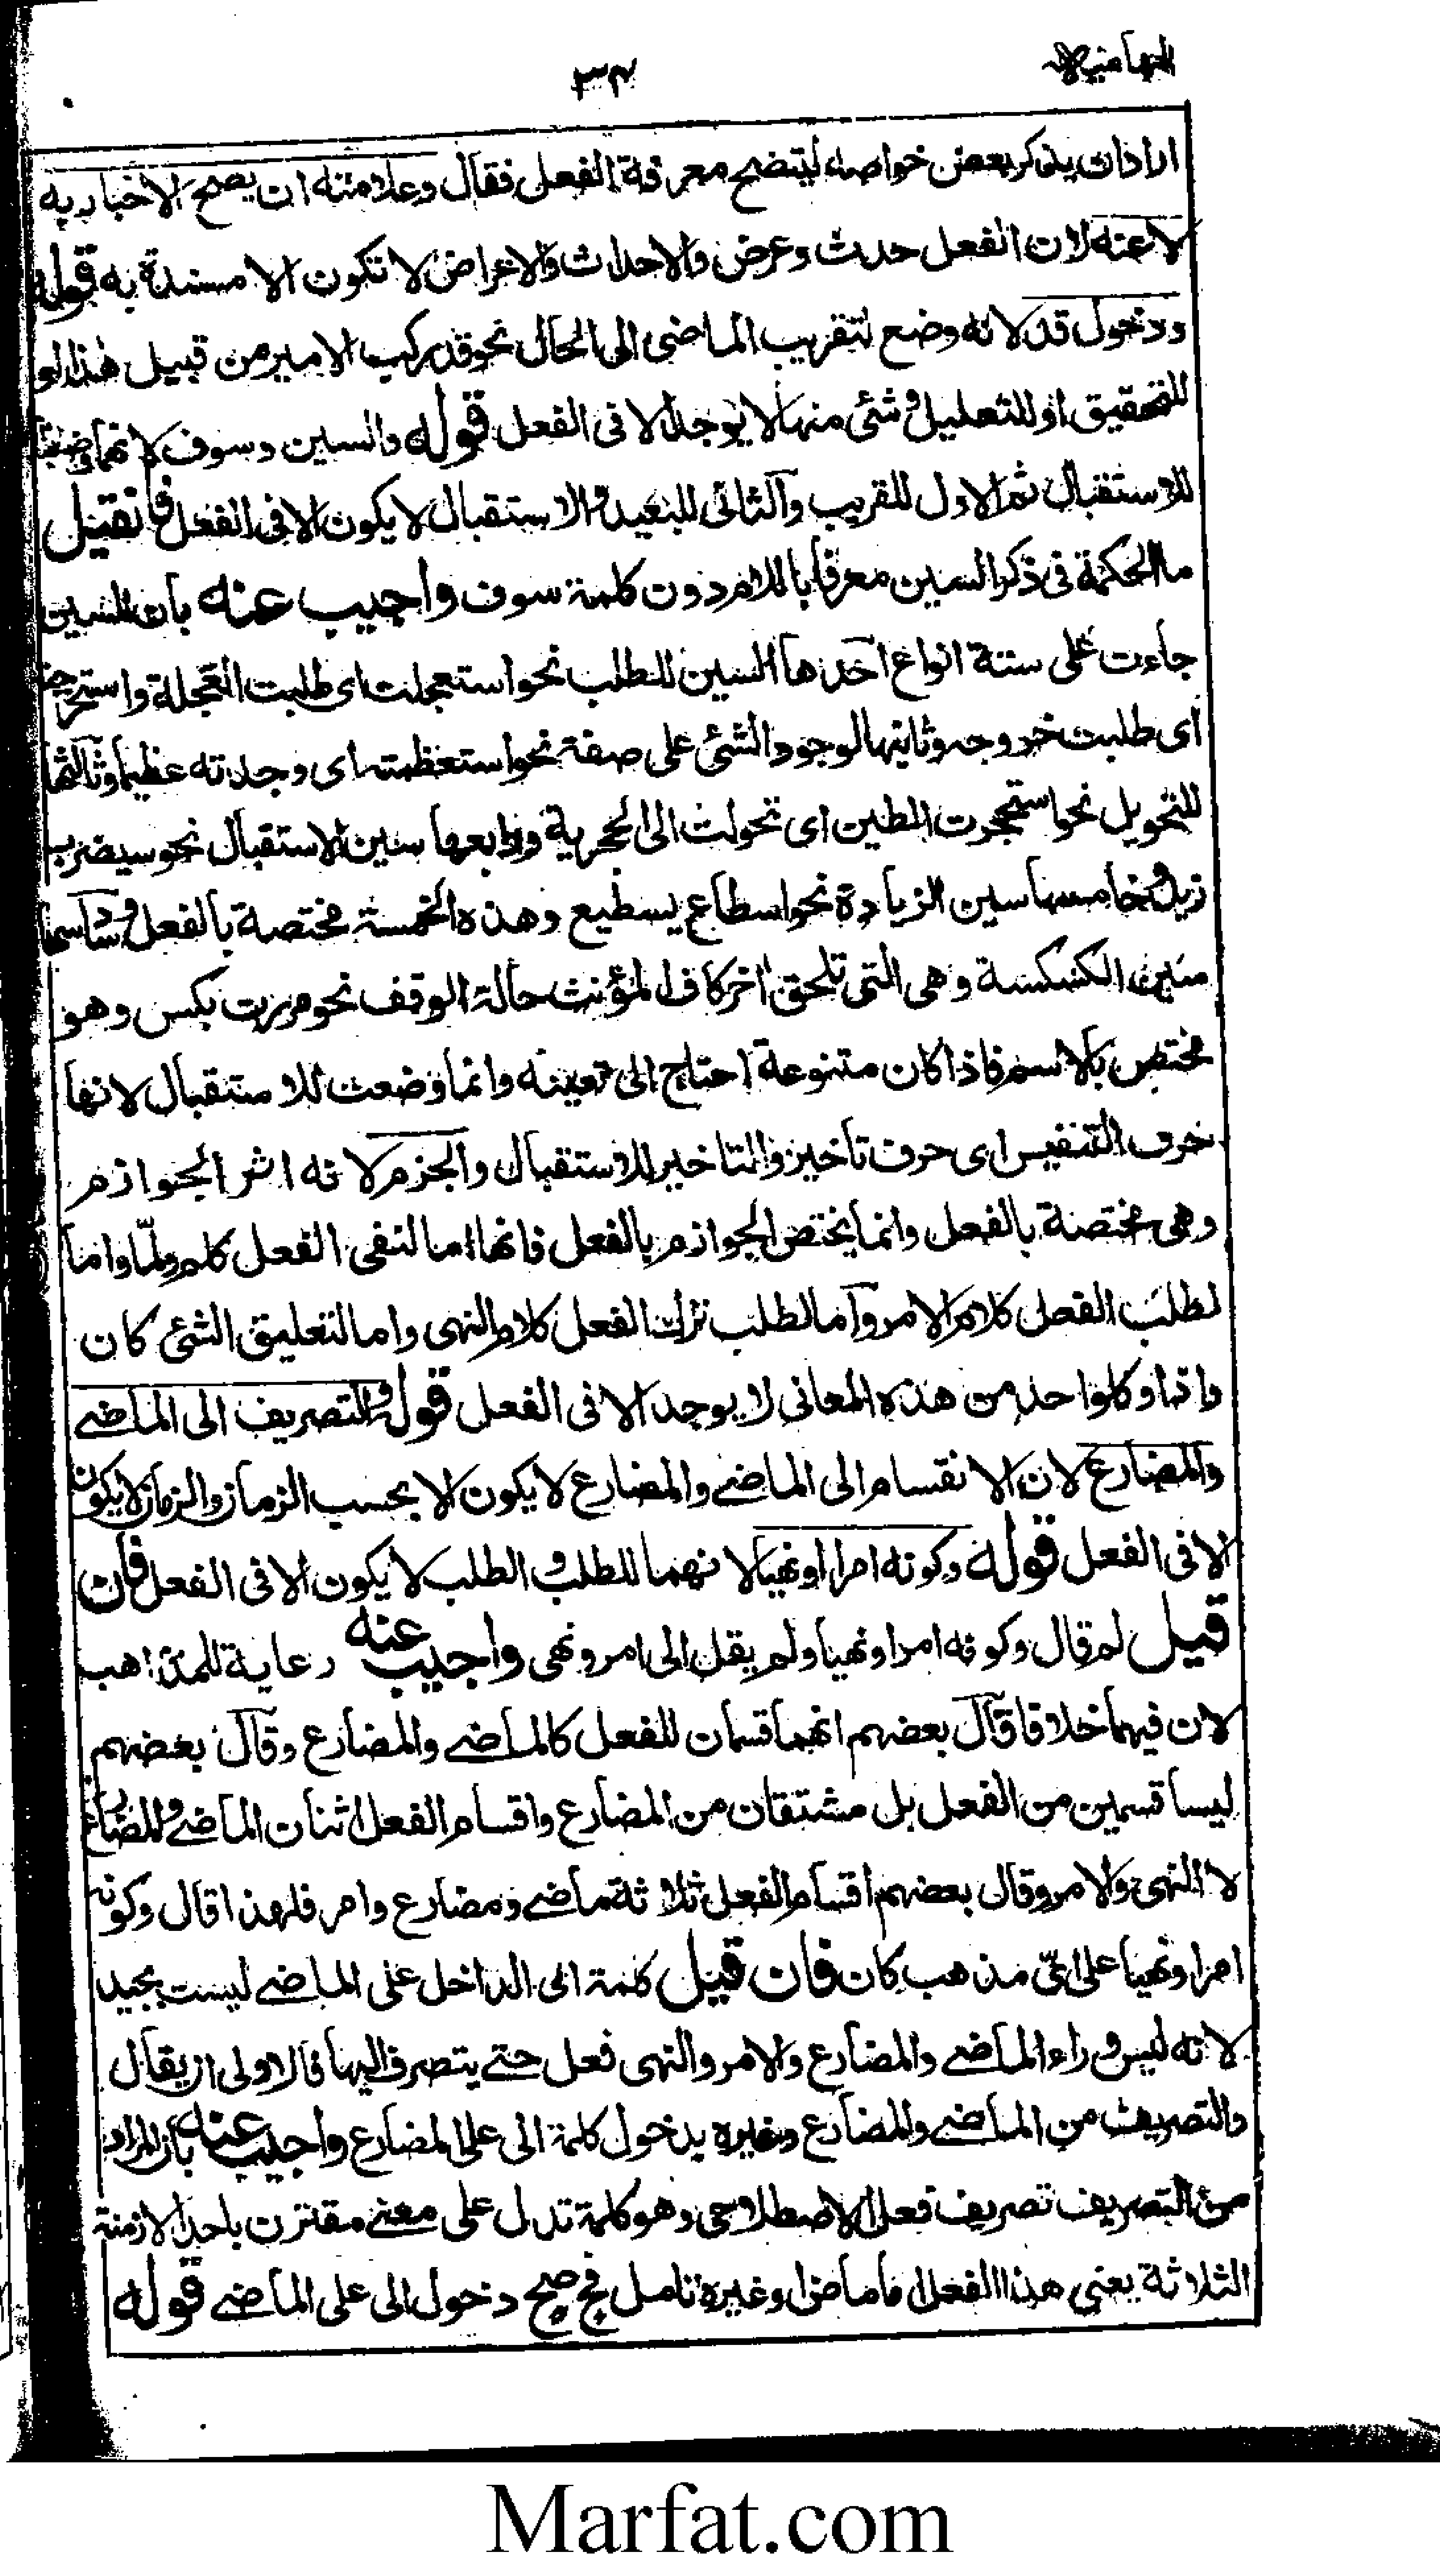 ٣٤
اراد ان يذكر بعض خواصه ليتضح معرفة الفعل فقال وعلامته ان يصح الاخبار به
لا عنه لان الفعل حدث وعرض والاحداث والاعراض لا تكون الا مسندة به قوله
ودخول قد لانه وضع لتقريب الماضى الى الحال نحو قد ركب الامير من قبيل هذا او
للتحقيق او للتعليل وشئ منها لا يوجد الا فى الفعل قوله والسين وسوف لانهما وضعتا
للاستقبال ثم الاول للقريب والثانى للبعيد والاستقبال لا يكون الا فى الفعل فان قيل
ما الحكمة فى ذكر السين معرفا باللام دون كلمة سوف واجيب عنه بان السين
جاءت على ستة انواع احدها السين للطلب نحو استعجلت اى طلبت العجلة واستخرجته
اى طلبت خروجه وثانيها لوجود الشئ على صفة نحو استعظمته اى وجدته عظيما وثالثها
للتحويل نحو استحجرت الطين اى تحولت الى الحجرية ورابعها سين الاستقبال نحو سيضرب
زيد وخامسها سين الزيادة نحو اسطاع يسطيع وهذه الخمسة مختصة بالفعل وسادسها
سين الكسكسة وهى التى تلحق اخر كاف المؤنث حالة الوقف نحو مررت بكس وهو
مختص بالاسم فاذا كان متنوعة احتاج الى تعينه وانما وضعت للاستقبال لانها
حرف التنفيس اى حرف تأخير والتاخير للاستقبال والجزم لانه اثر الجوازم
وهى مختصة بالفعل وانما يختص الجوازم بالفعل فانها اما لنفى الفعل كلم ولمّا واما
لطلب الفعل كلام الامر واما لطلب ترك الفعل كلام النهى واما لتعليق الشئ كان
واذما وكل واحد من هذه المعانى لا يوجد الا فى الفعل قوله والتصريف الى الماضے
والمضارع لان الانقسام الى الماضے والمضارع لا يكون الا بحسب الزمان والزمان لا يكون
الا فى الفعل قوله وكونه امرا او نهيا لانهما للطلب والطلب لا يكون الا فى الفعل فان
قيل لم قال وكونه امرا ونهيا ولم يقل الى امر ونهى واجيب عنه رعاية للمذاهب
لان فيهما خلافا قال بعضهم انهما قسمان للفعل كالماضے والمضارع وقال بعضهم
ليسا قسمين من الفعل بل مشتقان من المضارع واقسام الفعل اثنان الماضے والمضارع
لا النهى والامر وقال بعضهم اقسام الفعل ثلاثة ماضے ومضارع وامر فلهذا قال وكونه
امرا ونهيا على اىّ مذهب كان فان قيل كلمة الى الداخل على الماضے ليست بجيد
لانه ليس وراء الماضے والمضارع والامر والنهى فعل حتے يتصرف اليها فالاولى ان يقال
والتصريف من الماضے والمضارع وغيره بدخول كلمة الى على المضارع واجيب عنه بان المراد
من التصريف تصريف فعل الاصطلاحى وهو كلمة تدل على معنے مقترن باحد الازمنة
الثلاثة يعنى هذا الفعل اما ماض او غيره تامل فح صح دخول الى على الماضے قوله
Marfat.com